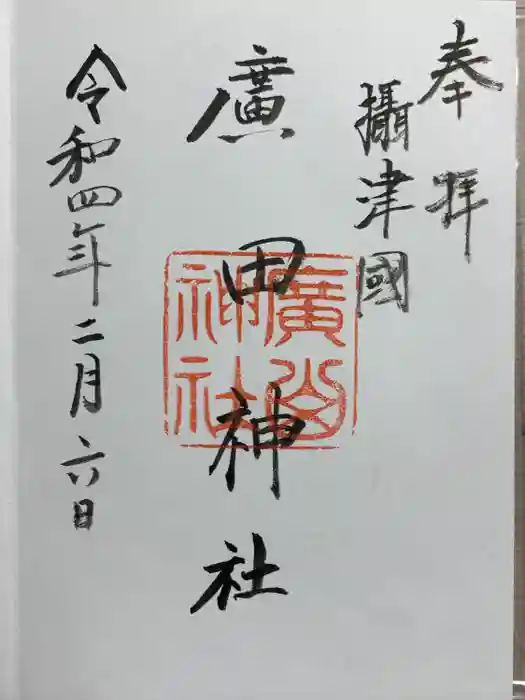 奉拝
攝津國
廣田神社
廣田
神社
令和四年二月六日